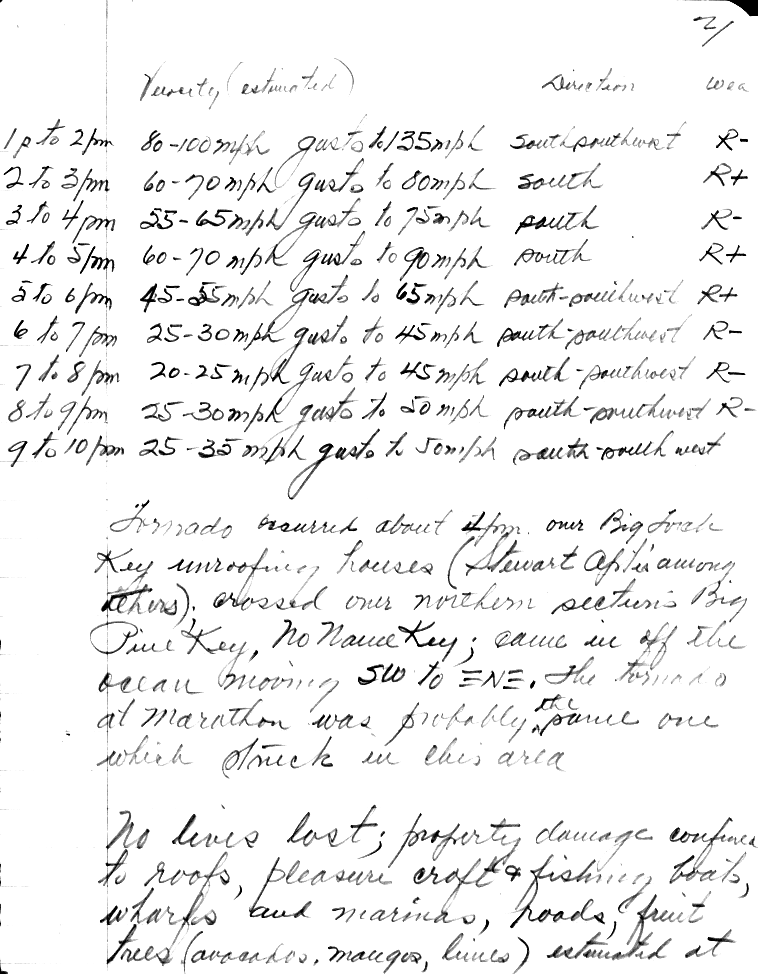 2/
Velocity (estimated) Direction Wea
1p to 2pm 80-100mph gusts to 135mph southsouthwest R-
2 to 3pm 60-70mph gusts to 80mph south R+
3 to 4pm 55-65mph gusts to 75mph south R-
4 to 5pm 60-70mph gusts to 90mph south R+
5 to 6pm 45-55mph gusts to 65mph south-southwest R+
6 to 7pm 25-30mph gusts to 45mph south-southwest R-
7 to 8pm 20-25mph gusts to 45mph south-southwest R-
8 to 9pm 25-30mph gusts to 50mph south-southwest R-
9 to 10pm 25-35mph gusts to 50mph south-south west
Tornado occurred about 4pm over Big
Key unroofing houses (Stewart among
others); crossed over northern sections Big
Pine Key, No Name Key; came in off the
ocean moving SW to ENE. The tornado
at Marathon was probably the same one
which struck in this area
No lives lost; property damage confined
to roofs, pleasure craft & fishing boats,
wharfs and marinas, roads, fruit
trees (avocados, mangos, limes) estimated at